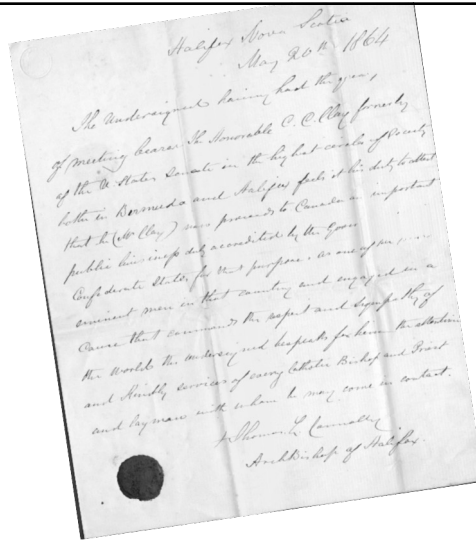 Halifax Nova Scotia
May 20th 1864
The Undersigned having had the
of meeting bearer The Honorable C. C. Clay formerly
of the U States Senate in the highest circles of Society
both in Bermuda and Halifax feels it his duty to attest
that he (Mr Clay) now proceeds to Canada on important
public business duly accredited by the
Confederate States for that purpose. As one of the
eminent men in that country and engaged in a
Cause that commands the respect and sympathy of
the World the undersigned bespeaks for him the attention
and Kindly services of every Catholic Bishop and Priest
and layman with whom he may come in contact.
+ Thomas L Connolly
ArchBishop of Halifax.